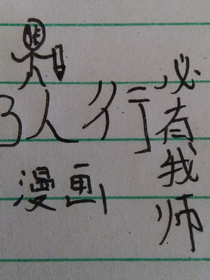 3人行
必有我师
漫画